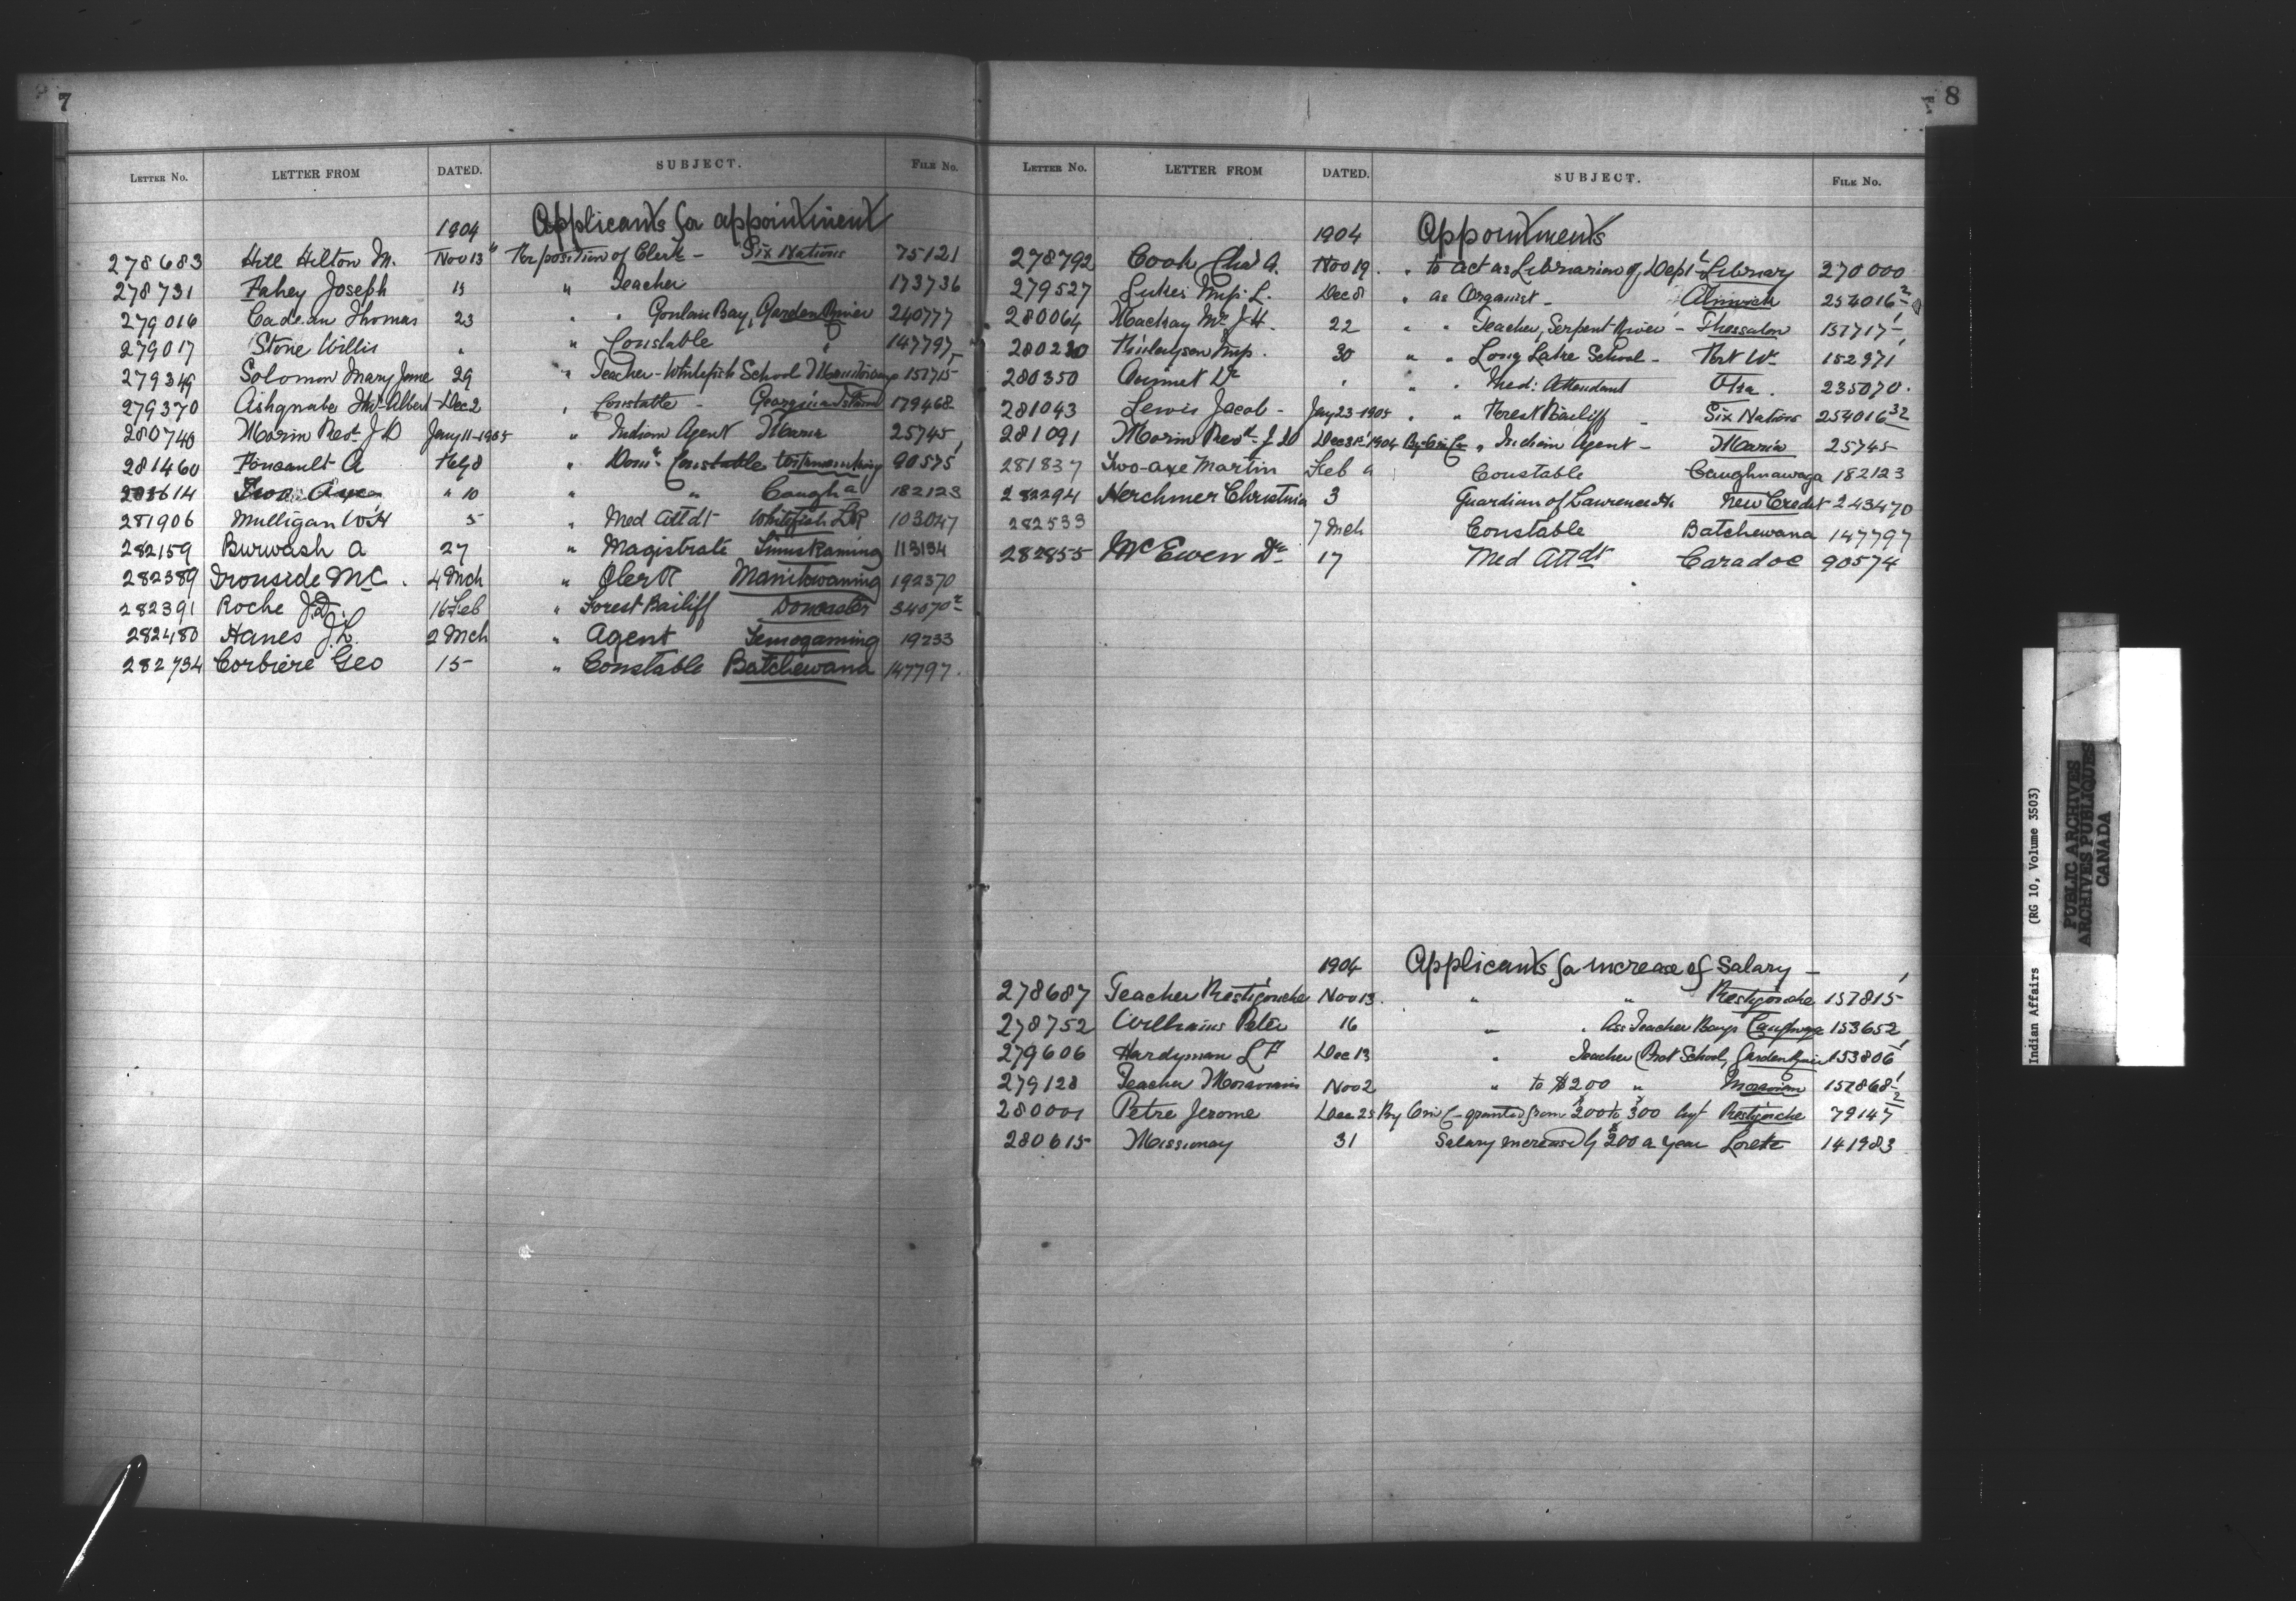 7
LETTER NO. LETTER FROM DATED. SUBJECT. FILE NO.
1904 Applicants for appointment
278683 Hill Hilton M. Nov 13 " For position of Clerk - Six Nations 75121
278731 Fahey Joseph 15 " Teacher 173736
279016 Cadeau Thomas 23 " " Goulais Bay, Garden River 240777
279017 Stone Willis " " Constable " 147797
279349 Solomon Mary Jane 29 " Teacher - Whitefish School Manitowaning 151715
279370 Albert Dec 2 " Constable - Georgina Island 179468
280740 Morin Revd J D Jany 11-1905 " Indian Agent Maria 25745
281460 Foucault A Feby 8 " Domn Constable Temiscaming 90575
Two Axe " 10 " " Caugha 182123
281906 Mulligan W H 5 " Med Attdt Whitefish LR 103047
282159 Burwash A 27 " Magistrate Timiskaming 113134
282389 Ironside McC. 4 Mch " Clerk Manitowaning 192370
282391 Roche J.D. 16 Feb " Forest Bailiff Doncaster 34070-2
282480 Hanes J.L. 2 Mch " Agent Temogaming 19233
282734 Corbiere Geo 15 " Constable Batchewana 147797.
8
LETTER NO. LETTER FROM DATED. SUBJECT. FILE NO.
1904 Appointments
278792 Cook Chas A. Nov 19. " to act as Librarian of Deptl Library 270000
279527 Lukes Miss L. Dec 8 " as Organist - Alnwick 254016-2
280064 Mackay Mr J H. 22 " " Teacher, Serpent River - Thessalon 151717-1
280230 Finlayson Miss. 30 " " Long Lake School - Port Wm 152971
280350 Dr " " " Med: Attendant 235070.
281043 Lewis Jacob - Jany 23-1905 " " Forest Bailiff - Six Nations 254016-32
281091 Morin Revd J D Dec 31st 1904 By Ord Cn " Indian Agent - Maria 25745
281837 Two-axe Martin Feb 9 Constable Caughnawaga 182123
282294 Herchmer Christina 3 Guardian of Lawrence H. New Credit 243470
282533 7 Mch Constable Batchewana 147797
282855 McEwen Dr 17 Med Attdt Caradoc 90574
1904 Applicants for increase of Salary -
278687 Teacher Restigouche Nov 13. " " Restigouche 151815-1
278752 Williams Peter 16 " " Ass Teacher Boys Caughnaga 153652
279606 Hardyman L F Dec 13 " Teacher Prot School, Garden River 153806-1
279128 Teacher Moravians Nov 2 " to $200 " Moravian 151868-1
280001 Petre Jerome Dec 25 By Ord C - granted from $200 to $300 Agt Restigouche 79147-2
280615 Missionary 31 Salary increased by $200 a year Lorette 141983
Indian Affairs (RG 10, Volume 3503)
PUBLIC ARCHIVES
ARCHIVES PUBLIQUES
CANADA